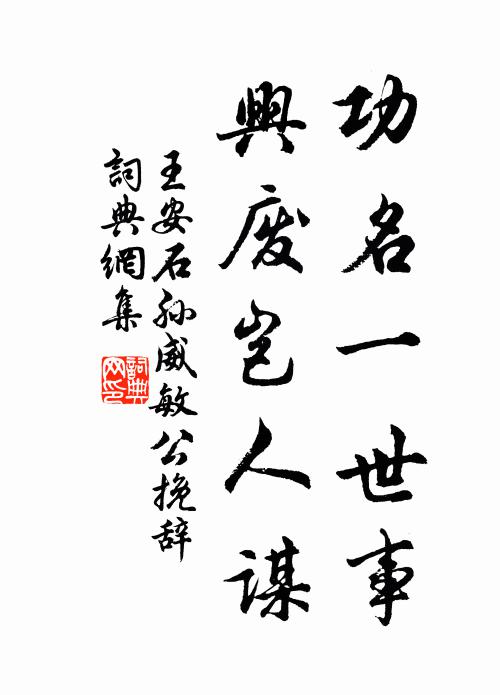 功名一世事
興廢豈人謀
王安石孙威敏公挽辞
詞典網集
詞典
网印